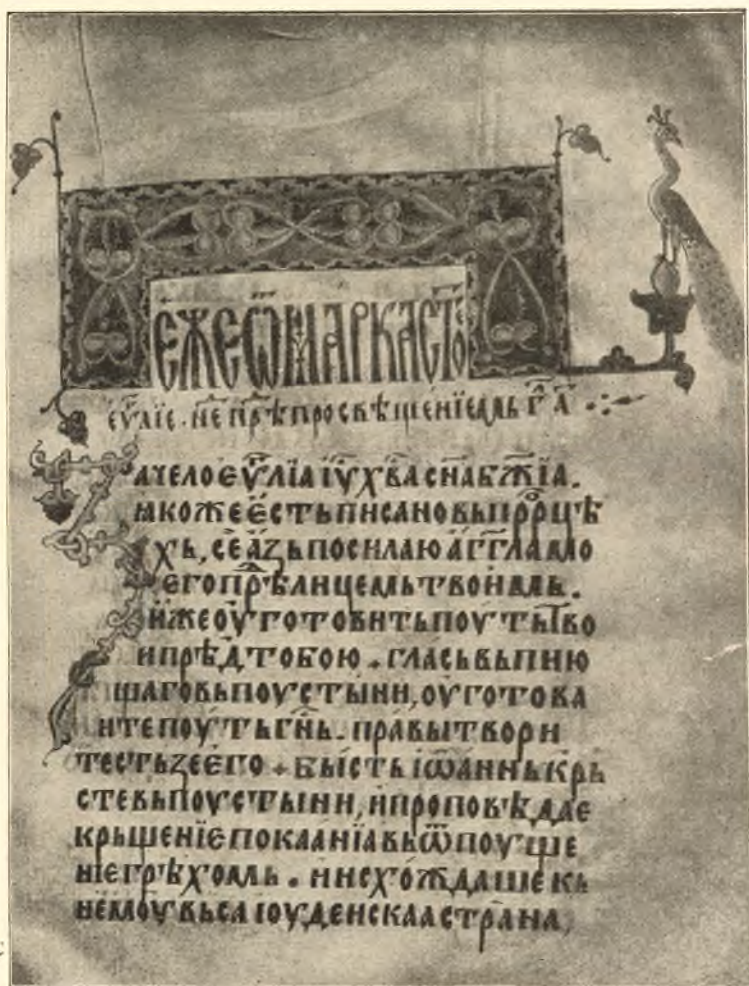 ЕЖЕ Ѿ МАРКА СТ҃О
еѵ҃лїе. не прѣ просвѣщенїемь г҃л҃
Зачело еѵ҃лїа іѵ҃ х҃ва сн҃а бж҃їа.
ꙗкоже ѥсть писано вь прⷪ҇рцѣ
хь, се азь посилаю агг҃ла мо
его прѣⷣ лицемь твоимь.
иже оуготовить поуть тво
и прѣд тобою. глась вьпию
щаго вь поустыни, оуготова
ите поуть гн҃ь. правы твори
те стьзе его. бысть іѡаннь крь
сте вь поустыни, и проповѣдае
крьщенїе покаанїа вь ѿпоуще
нїе грѣхомь. и исхождаше кь
немоу вьса іоуденскаа страна,